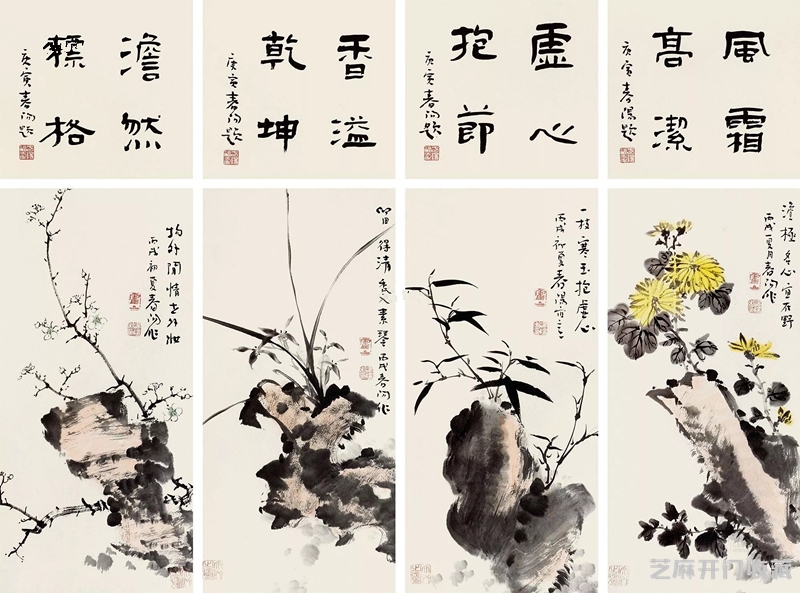 風霜
高潔
庚寅春題
虛心
抱節
庚寅春題
香溢
乾坤
庚寅春題
澹然
標格
庚寅春題
澹極心宜在野
丙戌夏月春作
一枝寒玉抱虛心
丙戌初夏春
留得清香入素琴 丙戌春作
物外閒情世外妝
丙戌初夏春作
芝麻开门收藏